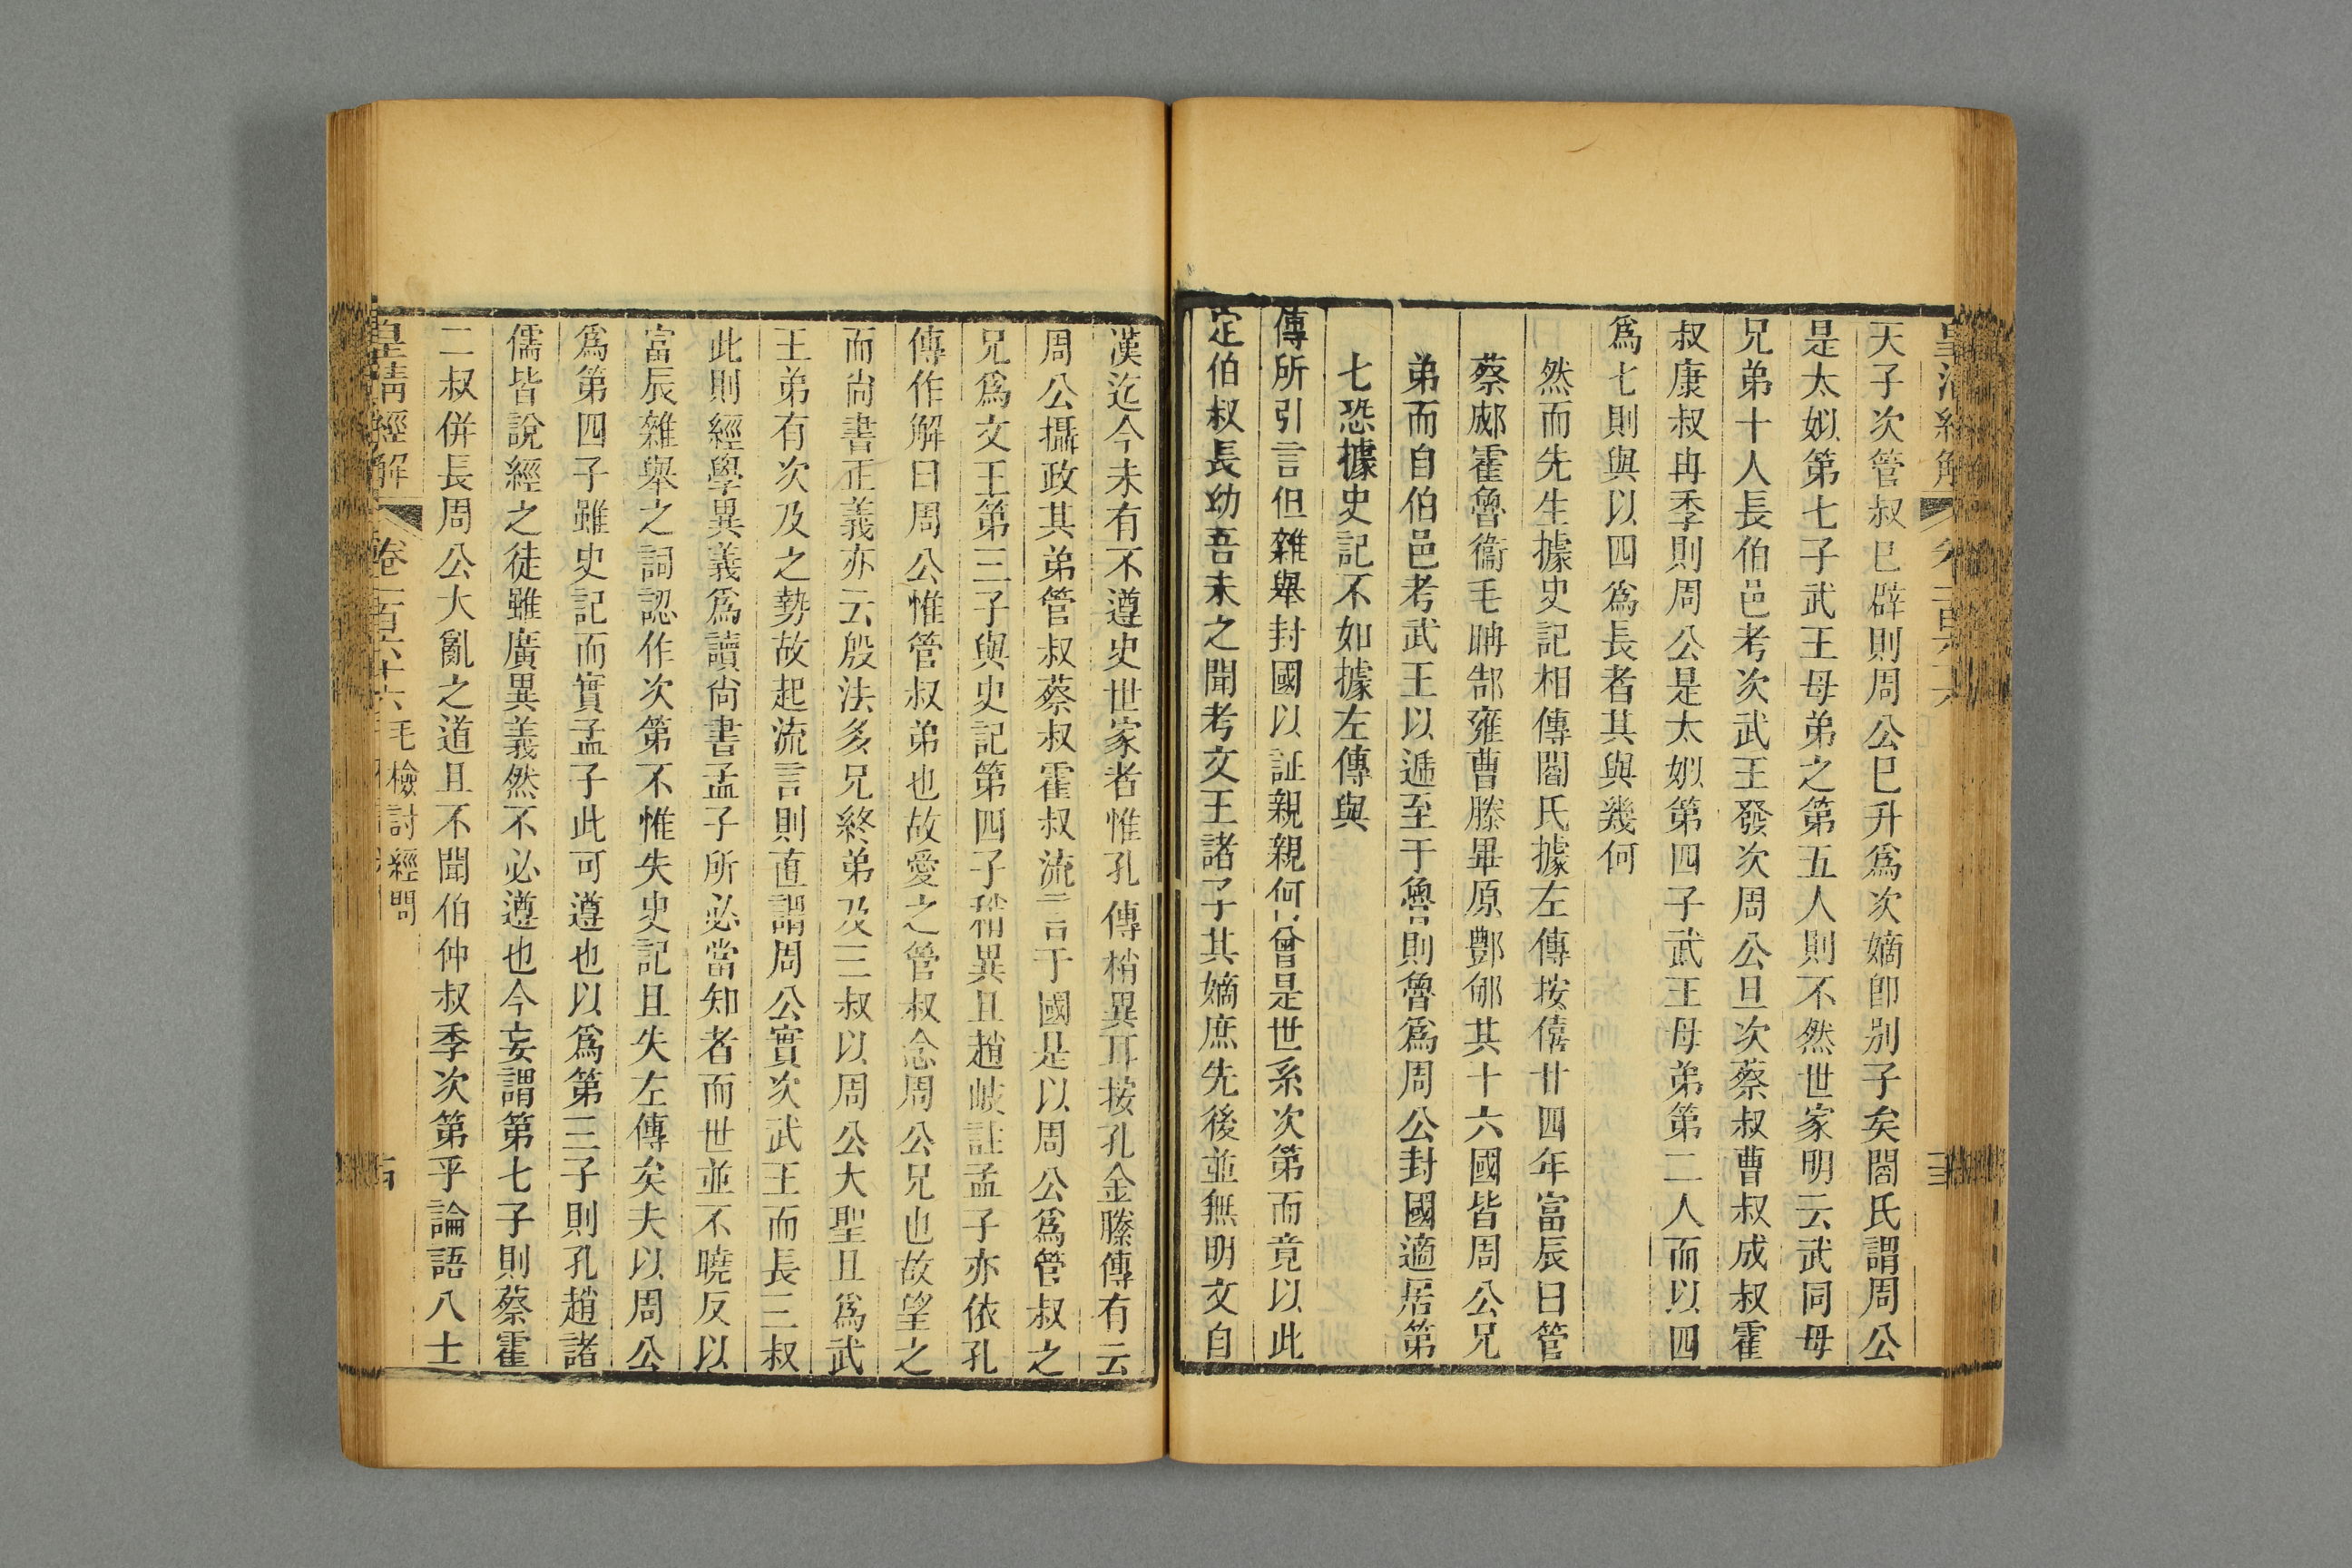 皇清經解
天子次管叔巳辟則周公巳升爲次嫡卽别子矣閻氏謂周公
是太姒第七子武王母弟之第五人則不然世家明云武同母
兄弟十人長伯邑考次武王發次周公旦次蔡叔曹叔成叔霍
叔康叔冉季則周公是太姒第四子武王母弟第二人而以四
爲七則與以四爲長者其與幾何
然而先生據史記相傳閻氏據左傳按僖廿四年富辰曰管
蔡郕霍魯衞毛聃郜雍曹滕畢原酆郇其十六國皆周公兄
弟而自伯邑考武王以遞至于魯則魯爲周公封國適居第
七恐據史記不如據左傳與
傳所引言但雜舉封國以証親親何曾是世系次第而竟以此
定伯叔長幼吾未之聞考文王諸子其嫡庶先後並無明文自
漢迄今未有不遵史世家者惟孔傳稍異耳按孔金縢傳有云
周公攝政其弟管叔蔡叔霍叔流言于國是以周公爲管叔之
兄爲文王第三子與史記第四子稍異且趙岐註孟子亦依孔
傳作解曰周公惟管叔弟也故愛之管叔念周公兄也故望之
而尙書正義亦云殷法多兄終弟及三叔以周公大聖且爲武
王弟有次及之勢故起流言則直謂周公實次武王而長三叔
此則經學異義爲讀尙書孟子所必當知者而世並不曉反以
富辰雜舉之詞認作次第不惟失史記且失左傳矣夫以周公
爲第四子雖史記而實孟子此可遵也以爲第三子則孔趙諸
儒皆說經之徒雖廣異義然不必遵也今妄謂第七子則蔡霍
二叔併長周公大亂之道且不聞伯仲叔季次第乎論語八士
皇淸經解
卷一百六十六
毛檢討經問